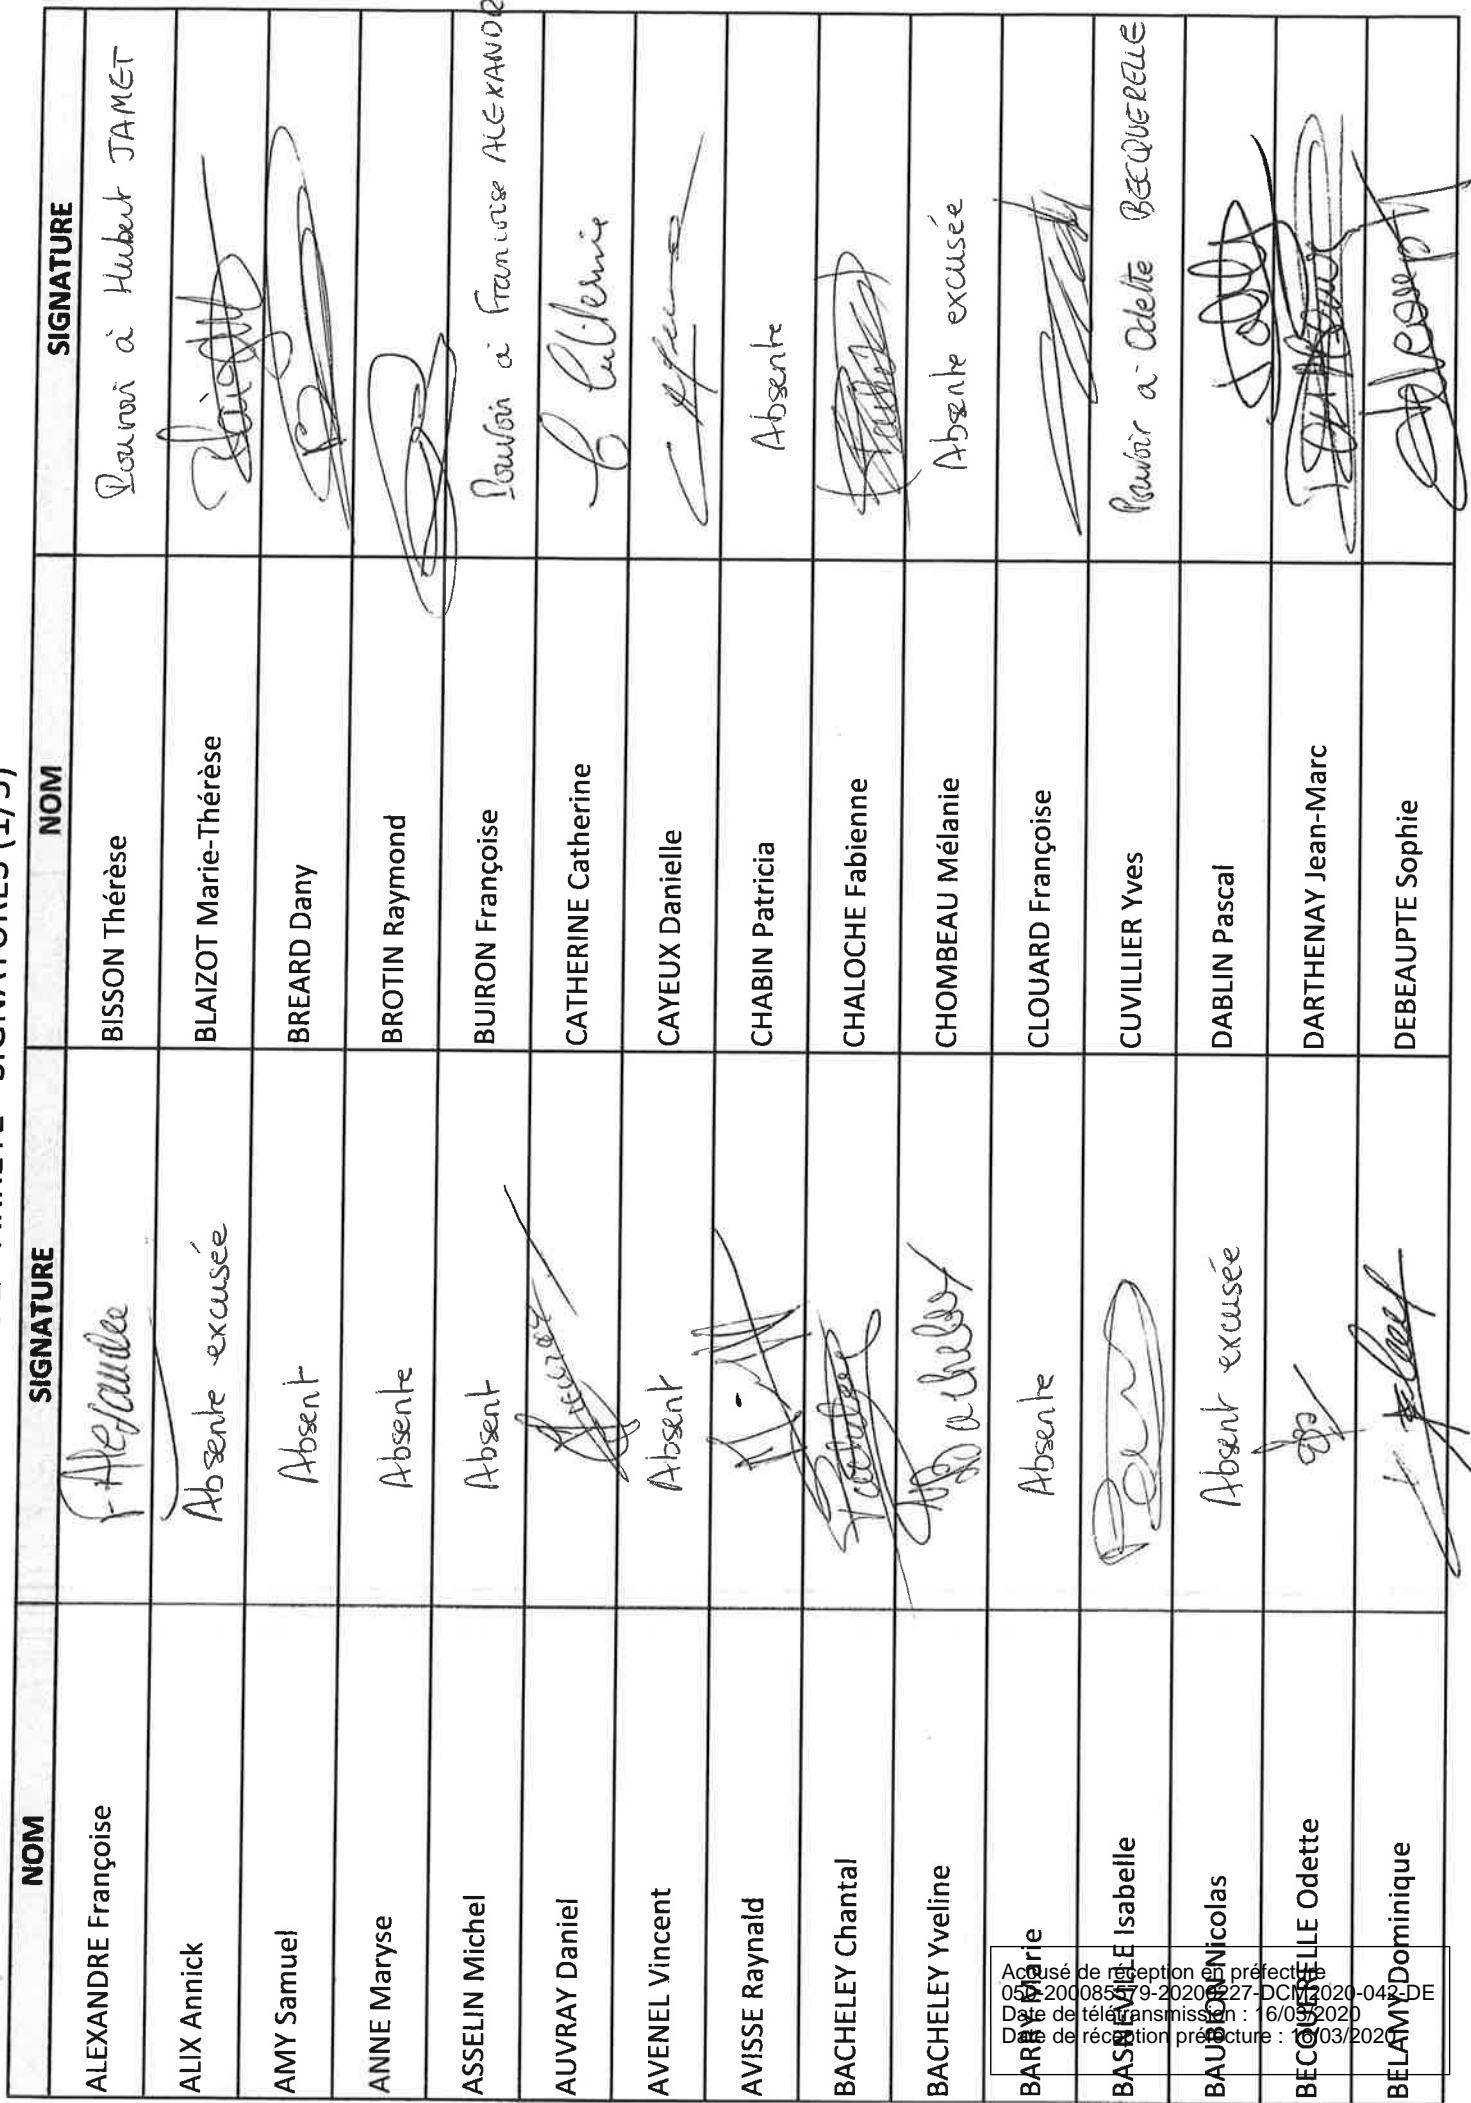 SIGNATURES (1/5)
NOM SIGNATURE NOM SIGNATURE
ALEXANDRE Françoise F Alexandre BISSON Thérèse Pouvoir à Hubert JAMET
ALIX Annick Absente excusée BLAIZOT Marie-Thérèse
AMY Samuel Absent BREARD Dany
ANNE Maryse Absente BROTIN Raymond
ASSELIN Michel Absent BUIRON Françoise Pouvoir à Françoise ALEXANDR
AUVRAY Daniel CATHERINE Catherine C Catherine
AVENEL Vincent Absent CAYEUX Danielle
AVISSE Raynald CHABIN Patricia Absente
BACHELEY Chantal CHALOCHE Fabienne
BACHELEY Yveline CHOMBEAU Mélanie Absente excusée
BARRY Marie Absente CLOUARD Françoise
BASNEVILLE Isabelle CUVILLIER Yves Pouvoir à Odette BECQUERELLE
BAUBION Nicolas Absent excusée DABLIN Pascal
BECQUERELLE Odette DARTHENAY Jean-Marc
BELAMY Dominique DEBEAUPTE Sophie
Accusé de réception en préfecture
050-200085579-20200227-DCM2020-042-DE
Date de télétransmission : 16/03/2020
Date de réception préfecture : 16/03/2020